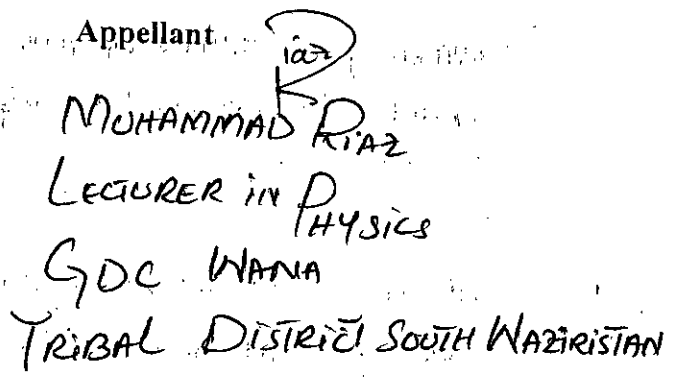 Appellant
Riaz
MUHAMMAD RIAZ
LECTURER in PHYSICS
GDC WANA
TRIBAL DISTRICT SOUTH WAZIRISTAN